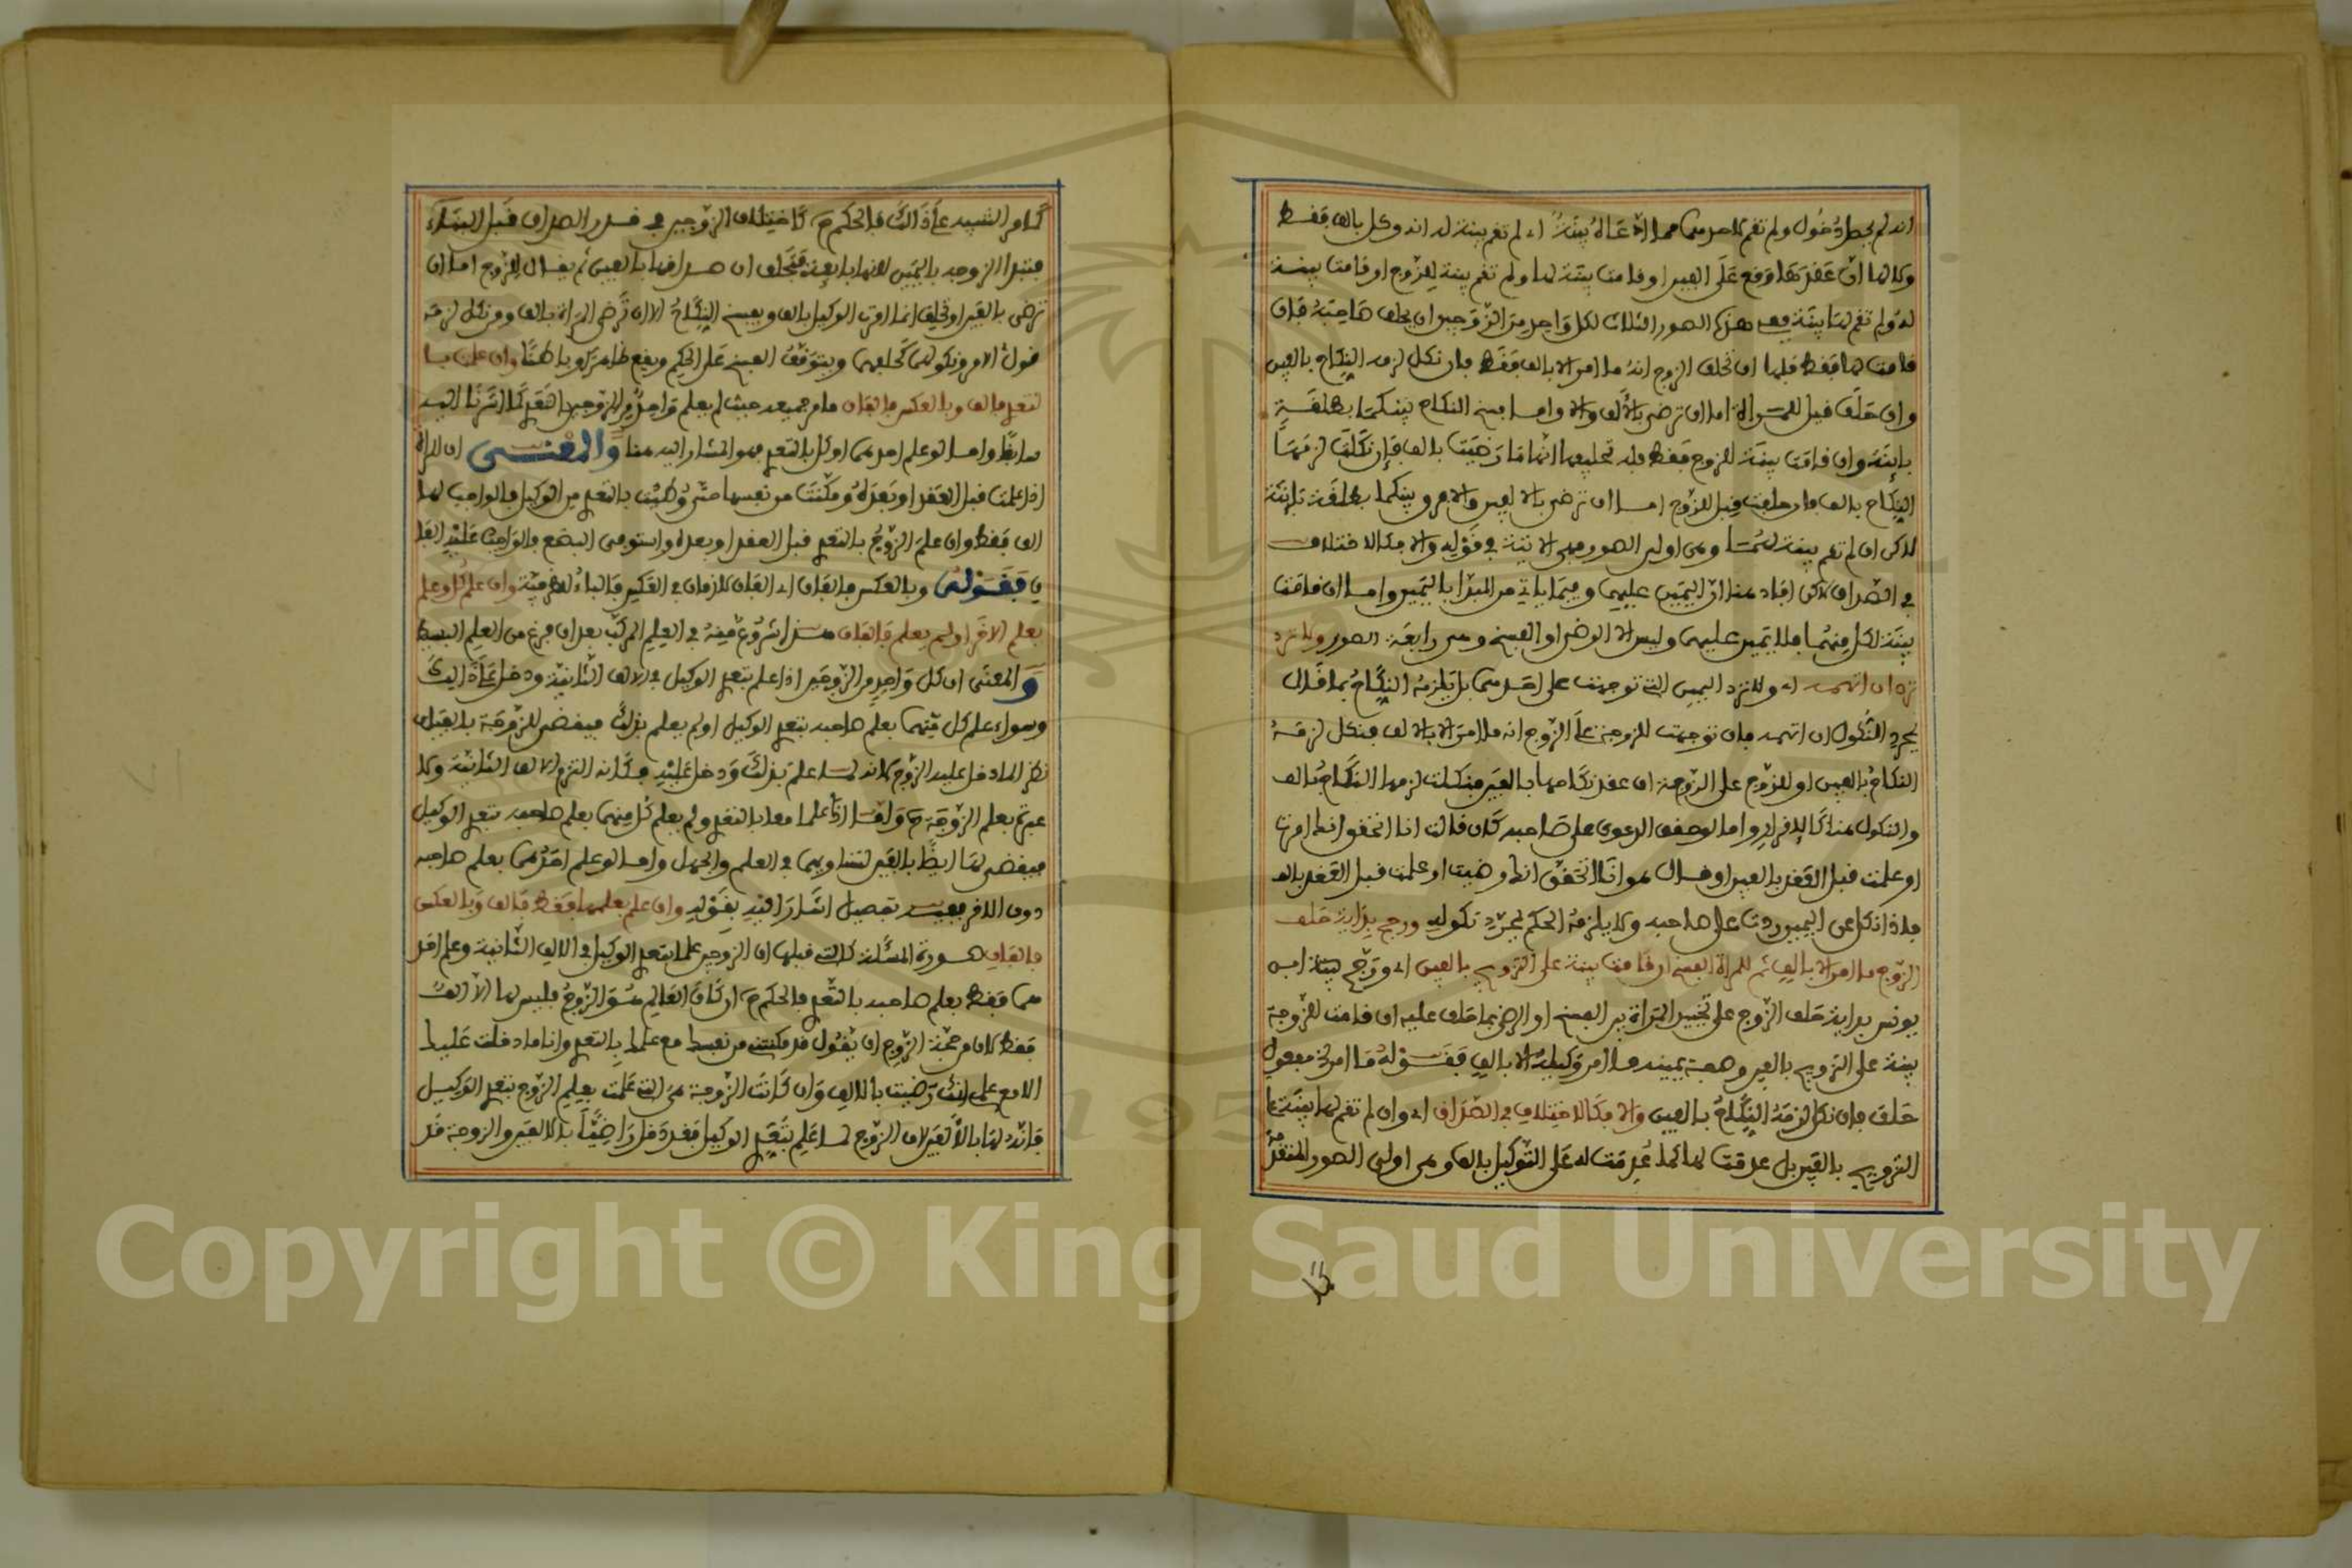 انه لم يحصل دخول ولم تقم لاحدهما حال الادعاء له بينة اي لم تقم بينة له انه وكل بالف فقط
ولا لها ان عقدها وقع على الفين او قامت بينة لها ولم تقم بينة للزوج او قامت بينة
له ولم تقم لها بينة ففي هذه الصور الثلاث لكل واحد من الزوجين ان يحلف صاحبه فان
قامت لها فقط فلها ان تحلف الزوج انه ما امر الا بالف فقط فان نكل لزمه النكاح بالفين
وان حلف قيل للمرأة اما ان ترضي بالف والا واما فسخ النكاح بينكما بطلقة
باينة وان قامت بينة للزوج فقط فله تحليفها انها ما رضيت بالف فان نكلت لزمها
النكاح بالف فان حلفت قيل للزوج اما ان ترضى بالالفين والا فرق بينكما بطلقة باينة
لاكن ان لم تقم بينة لهما وهي اولى الصور فهي الاتية في قوله والا فكالاختلاف
في الصداق لاكن افاد هنا ان اليمين عليهما وفيما ياتي من المبدأ باليمين واما ان قامت
بينة لكل منهما فلا يمين عليهما وليس الا الرضى او الفسخ وهي رابعة الصور ولا ترد
ترد ان اتهمه اي ولا ترد اليمين التي توجهت على احدهما بل يلزمه النكاح بما قال
بمجرد النكول ان اتهمه فان توجهت للزوجة على الزوج انه ما امر الا بالالف فنكل لزمه
النكاح بالفين او للزوج على الزوجة ان عقد نكاحها بالفين فنكلت لزمها النكاح بالف
والنكول هنا كالاقرار واما لو حقق الدعوى على صاحبه كان قالت انا اتحقق انك امرت
او علمت قبل العقد بالفين او قال هو انا اتحقق انك رضيت او علمت قبل العقد بالف
فاذا نكل عن اليمين ردت على صاحبه ولا يلزمه الحكم بمجرد نكوله ورجح بداية حلف
الزوج ما امره الا بالف ثم للمرأة الفسخ ان قامت بينة على التزويج بالفين اي ورجح ابن
يونس بداية حلف الزوج على تخيير المرأة بين الفسخ او الرضى بما حلف عليه ان قامت للزوجة
بينة على التزويج بالفين وصفة يمينه ما امر وكيله الا بالف فقوله ما امره مفعول
حلف فان نكل لزمه النكاح بالفين والا فكالاختلاف في الصداق اي وان لم تقم لها بينة على
التزويج بالفين بل عدمت لها كما عدمت له على التوكيل بالف وهي اولى الصور المتقدمة
كما مر التنبيه على ذالك فالحكم كاختلاف الزوجين في قدر الصداق قبل البناء
فتبدا الزوجة باليمين لانها بايعة فتحلف ان صداقها بالفين ثم يقال للزوج اما ان
ترضى بالفين او تحلف انما امرت الوكيل بالف ويفسخ النكاح الا ان ترضى المرأة بالف ومن نكل لزمه
قول الاخر ونكولهما كحلفهما ويتوقف الفسخ على الحكم ويقع ظاهرا وباطنا وان علمت بـا
لتعدي فالف وبالعكس فالفان ما مر جميعه حيث لم يعلم واحد من الزوجين التعدي كما اشرنا اليه
سابقا واما لو علم احدهما او كل بالتعدي فهو المشار اليه هنا والمعنى ان المرأة
اذا علمت قبل العقد او بعده ومكنت من نفسها حتى وطئت بالتعدي من الوكيل فالواجب لها
الف فقط وان علم الزوج بالتعدي قبل العقد او بعده واستوفى البضع فالواجب عليه الفا
ن فقوله وبالعكس فالفان اي الفان لازمان في العكس فالباء ظرفية وان علم كل وعلم
بعلم الاخر او لم يعلم فالفان هذا شروع منه في العلم المركب بعد ان فرغ من العلم البسيط
والمعنى ان كل واحد من الزوجين اذا علم بتعدي الوكيل في الالف الثانية ودخل على ذالك
وسواء علم كل منهما بعلم صاحبه بتعدي الوكيل او لم يعلم بذلك فيقضى للزوجة بالفين
نظرا لما دخل عليه الزوج لانه لما علم بذلك ودخل عليه فكانه التزم الالف الثانية ولا
عبرة بعلم الزوجة ح واما اذا علما معا بالتعدي ولم يعلم كل منهما بعلم صاحبه بتعدي الوكيل
فيقضى لها ايضا بالفين لتساويهما في العلم والجهل واما لو علم احدهما بعلم صاحبه
دون الاخر ففيه تفصيل اشار اليه بقوله وان علم بعلمها فقط فالف وبالعكس
فالفان صورة المسألة كالتي قبلها ان الزوجين علما بتعدي الوكيل في الالف الثانية وعلم احد
هما فقط بعلم صاحبه بالتعدي فالحكم ح ان كان العالم هو الزوج فليس لها الا الف
فقط لان من حجة الزوج ان يقول قد مكنت من نفسك مع علمك بالتعدي وانا ما دخلت عليك
الا مع علمي انك رضيت بالالف وان كانت الزوجة هي التي علمت بعلم الزوج بتعدي الوكيل
فانه لها بالالفين لان الزوج لما علم بتعدي الوكيل فقد دخل راضيا بالالفين والزوجة قد
Copyright © King Saud University
1957